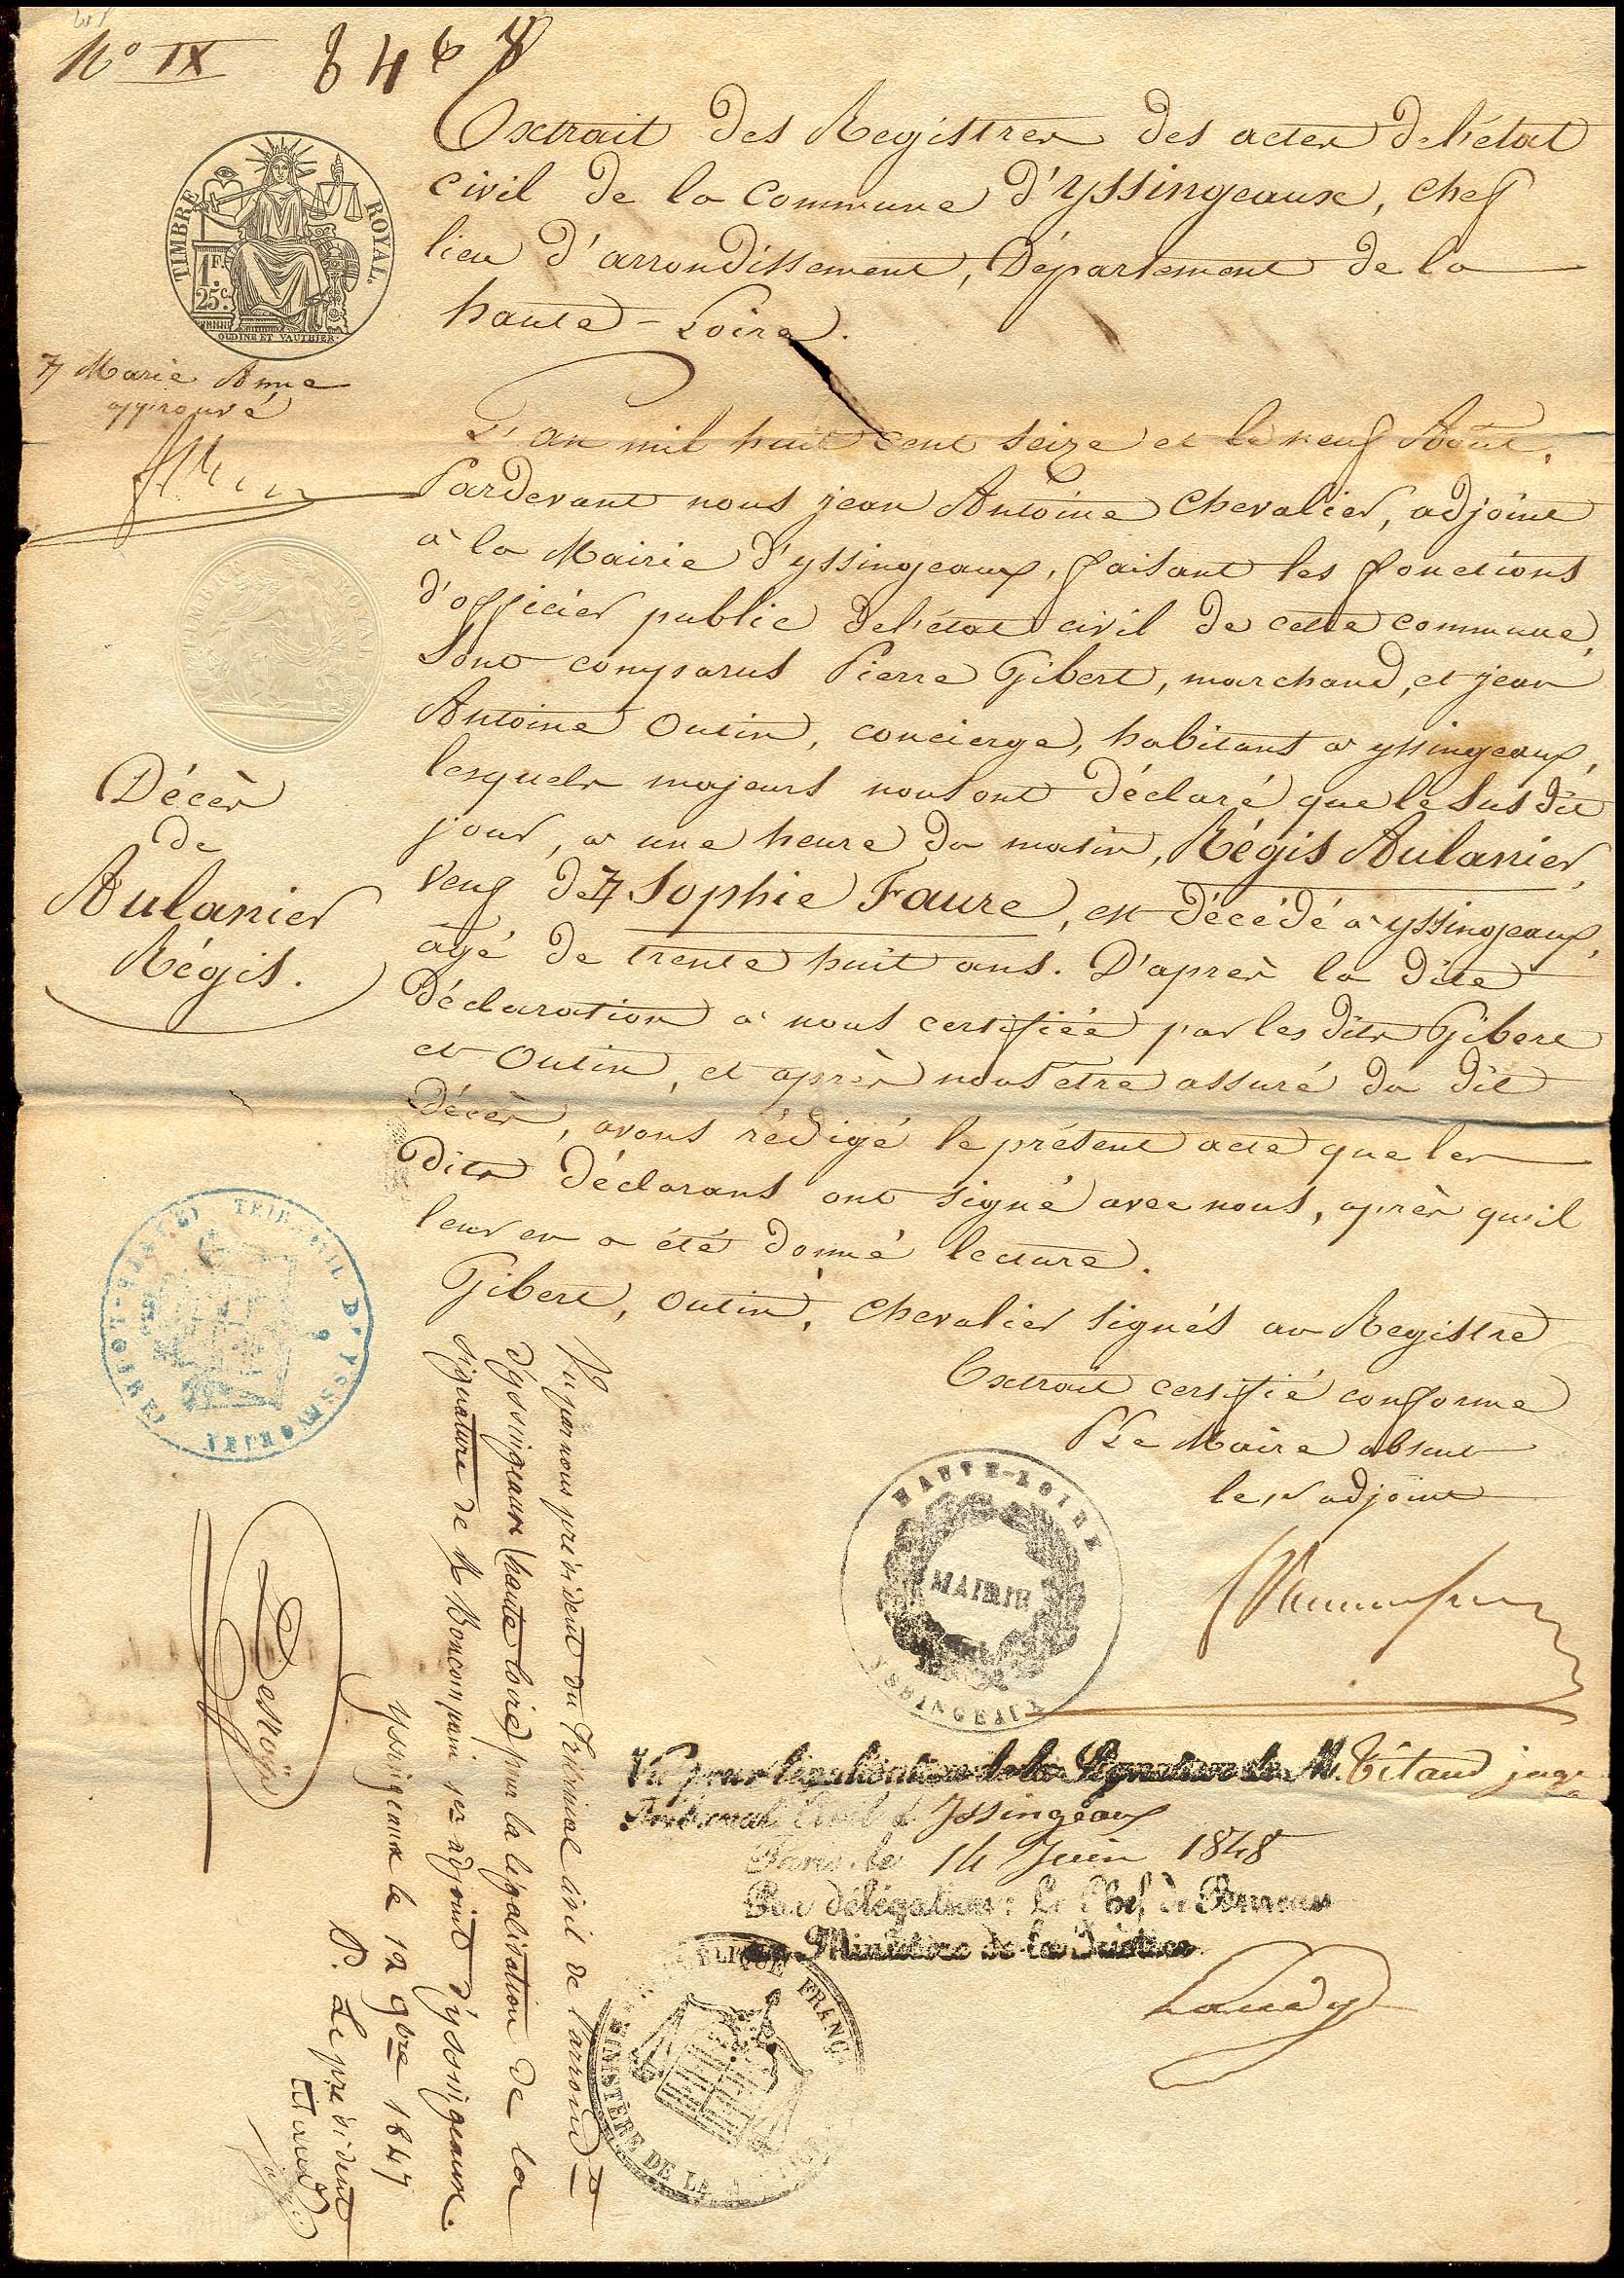 N° IX
Extrait des Registres des actes de l'état
civil de la Commune d'yssingeaux, chef
lieu d'arrondissement, Département de la
haute-Loire.
TIMBRE ROYAL.
1 F.
25 c.
OUDINE ET VAUTHIER.
7 Marie Anne
approuvé
L'an mil huit cent seize et le neuf Août,
Pardevant nous jean Antoine Chevalier, adjoint
à la Mairie d'yssingeaux, faisant les fonctions
d'officier public de l'état civil de cette commune,
Sont comparus Pierre Gibert, marchand, et jean
Antoine Outin, concierge, habitants à yssingeaux,
lesquels majeurs nous ont déclaré que le susdit
jour, à une heure du matin, Régis Aulanier,
veuf de 7 Sophie Faure, est décédé à yssingeaux,
âgé de trente huit ans. D'après la dite
Déclaration à nous certifiée par les dits Gibert
et Outin, et après nous être assuré du dit
Décès, avons rédigé le présent acte que les
dits déclarans ont signé avec nous, après qu'il
leur en a été donné lecture.
Gibert, Outin, Chevalier signés au Registre
Décès
de
Aulanier
Régis.
Extrait certifié conforme
Le Maire absent
le 1er adjoint
HAUTE-LOIRE
MAIRIE
YSSINGEAUX
Vu par nous président du Tribunal civil de l'arrondt
d'yssingeaux (haute loire) pour la légalisation de la
signature de M Boncompain 1er adjoint d'yssingeaux.
yssingeaux le 12 9bre 1847
P. Le président
Titaud
juge
Vu pour légalisation de la Signature de M. Titaud juge
Tribunal Civil d'Issingeaux
Paris, le 14 Juin 1848
Par délégation: Le Chef de Bureau
Ministère de la Justice
RÉPUBLIQUE FRANÇ
MINISTÈRE DE LA JUSTICE